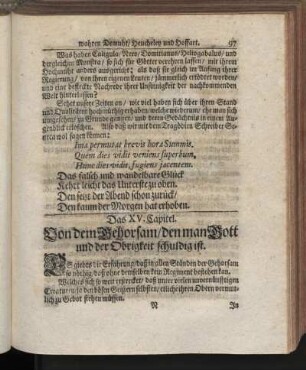 wahren Demuht, Heucheley und Hoffart. 97
Was haben Caligula, Nero, Domitianus, Heliogabalus, und
dergleichen Monstra, so sich für Götter verehren lassen, mit ihrem
Hochmuht anders ausgericht; als daß sie gleich im Anfang ihrer
Regierung, von ihren eigenen Leuten, jämmerlich ermordet worden,
und eine beständige Nachrede ihrer Unsinnigkeit der nachkommenden
Welt hinterlassen?
Gehet unsere Zeiten an, wie viel haben sich über ihren Stand
und hochmühtig erhaben, welche wiederum, ehe man sich
umgesehen, zu Grunde gangen, und deren Gedächtnis in einem Au-
genblick erloschen. Also daß wir mit dem Tragödien Schreiber Se-
neca wol sagen können:
Ima permutat brevis hora summis.
Quem dies vidit veniens superbum,
Hunc dies vidit fugiens jacentem.
Das falsch und wandelbare Glück
Kehrt leicht das Unterste zu oben.
Den setzt der Abend schon zurück,
Den kaum der Morgen hat erhoben.
Das XV. Capitel.
Von dem Gehorsam, den man Gott
und der Obrigkeit schuldig ist.
Es giebet die Erfahrung, daß in allen Ständen der Gehorsam
so nöhtig, daß ohne denselben kein Regiment bestehen kan.
Welches sich so weit erstrecket, daß unter vielen unvernünfftigen
Creaturen, ja den bösen Geistern selbsten, etliche ihren Obern vernun-
lich zu Gebot stehen müssen.
N Jn